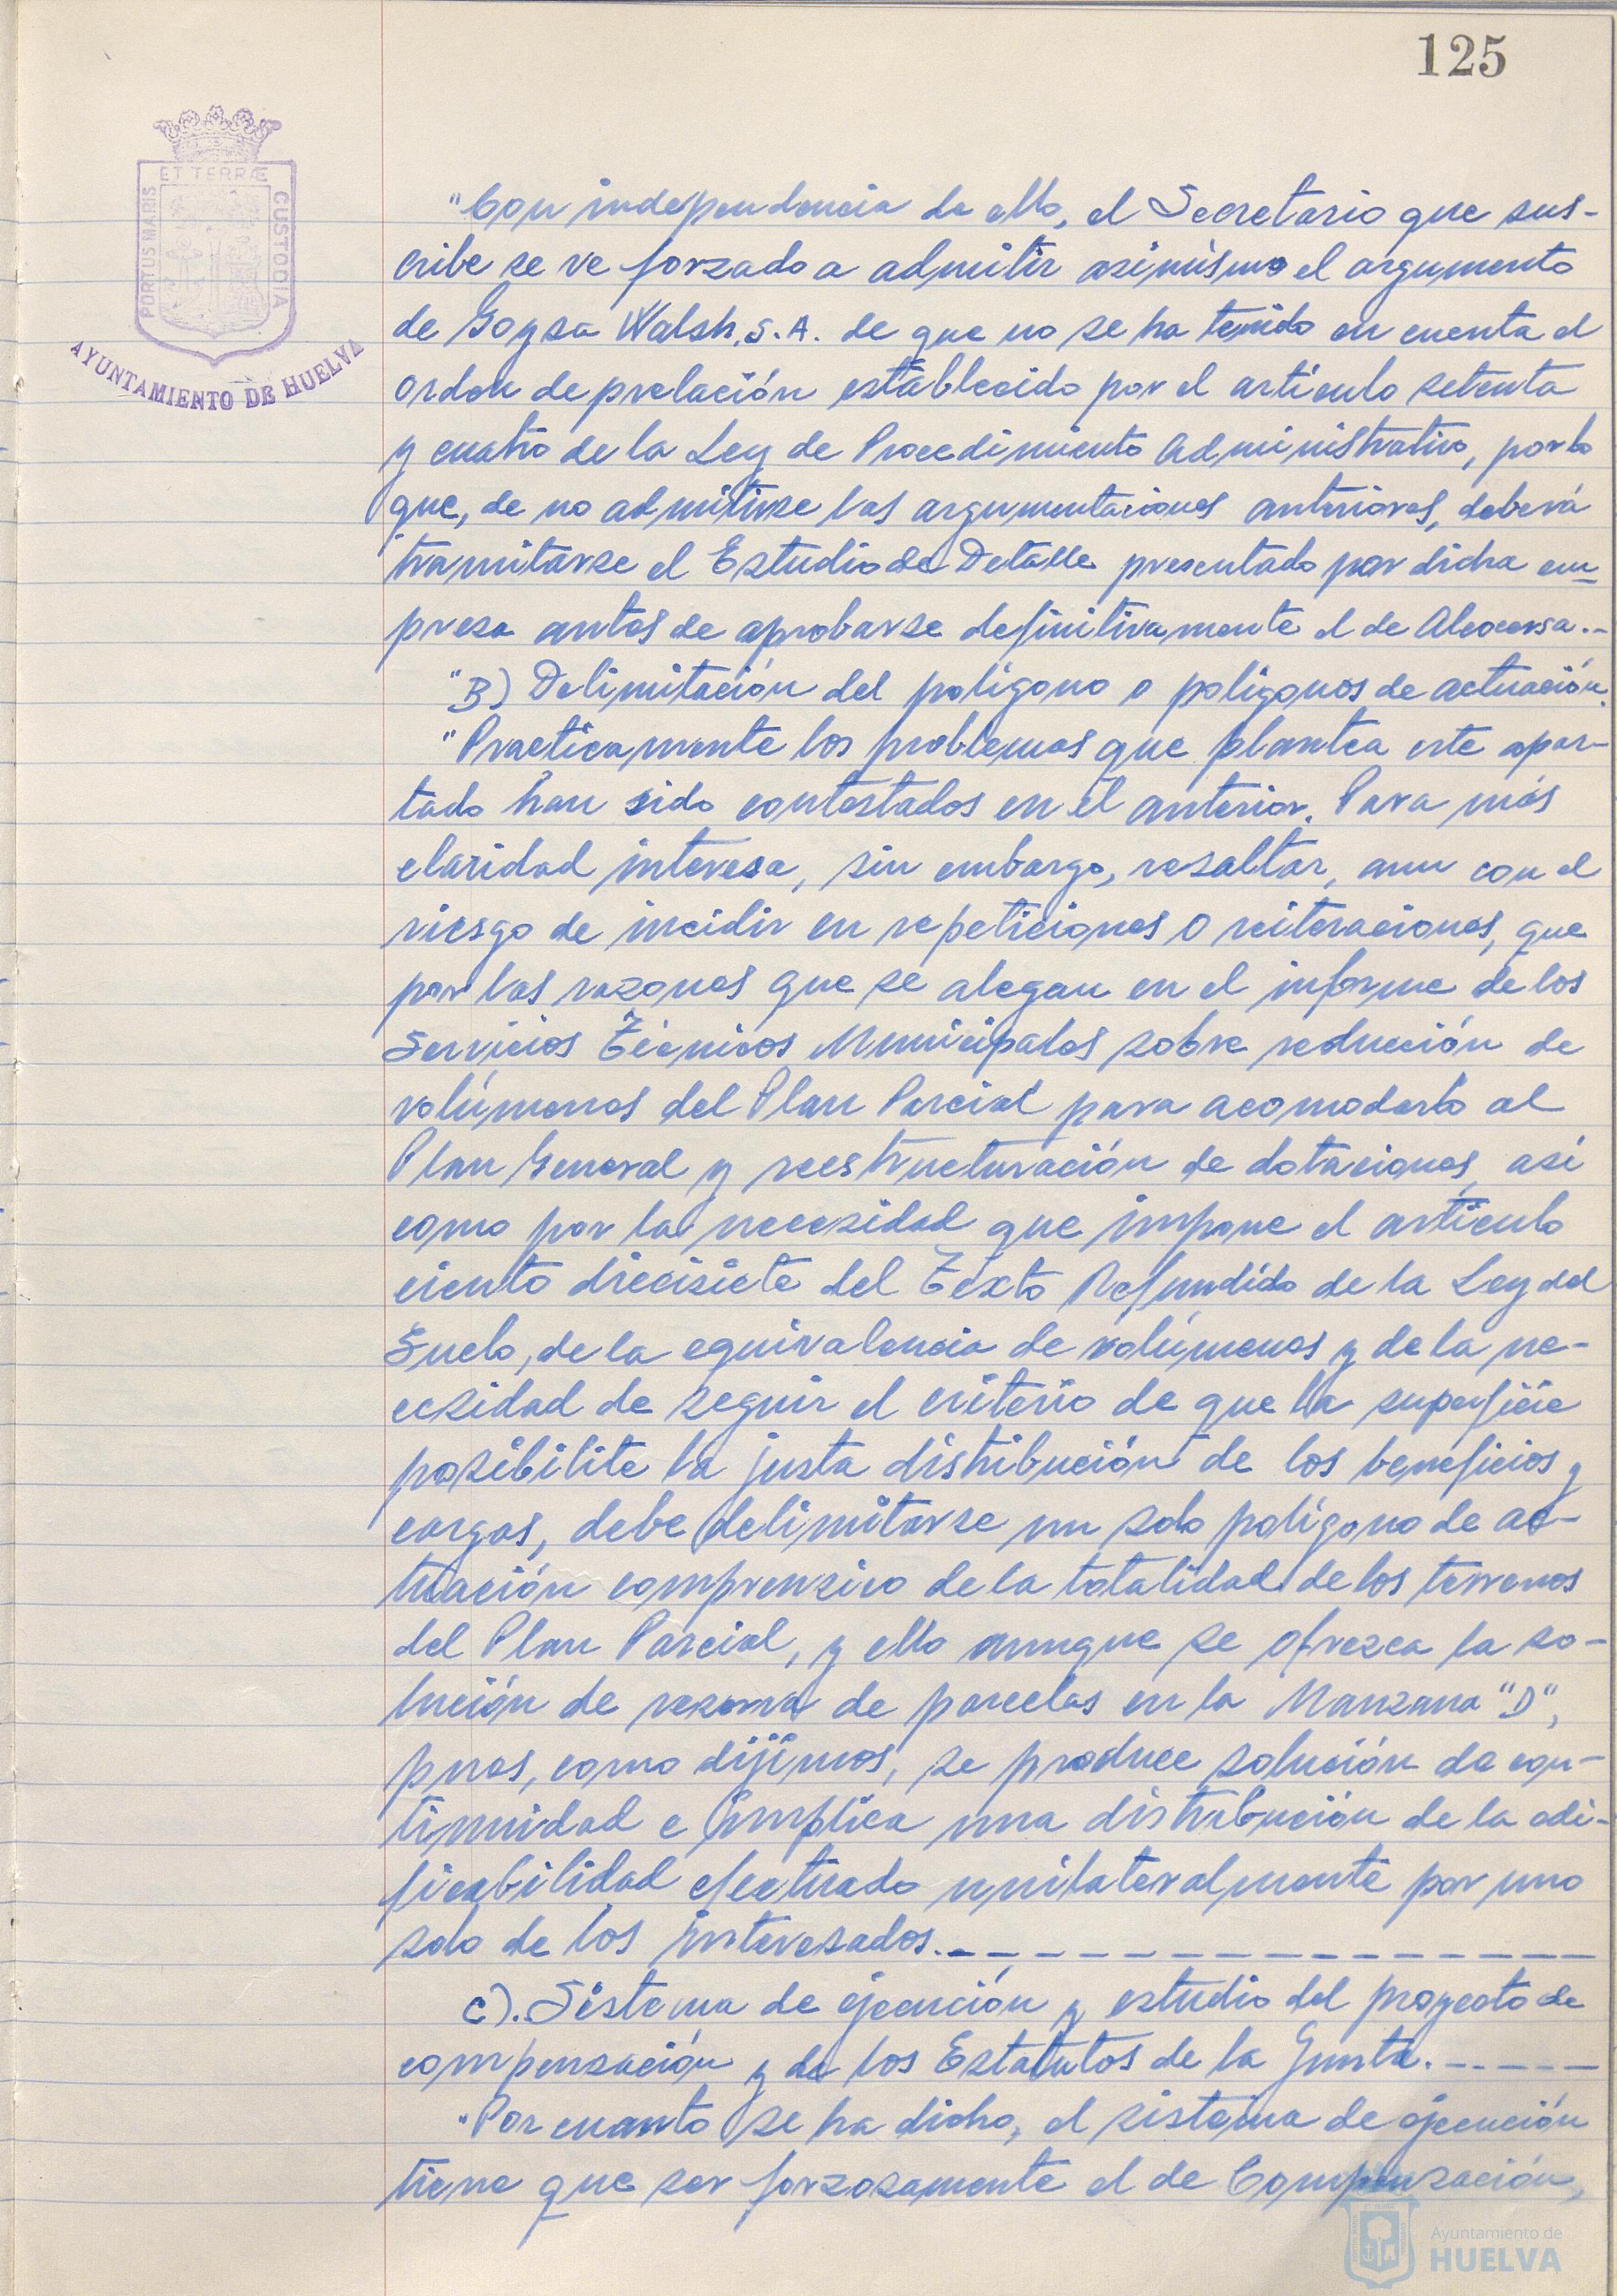 125
ET TERRÆ
PORTUS MARIS
CUSTODIA
AYUNTAMIENTO DE HUELVA
"Con independencia de ello, el Secretario que sus-
cribe se ve forzado a admitir asimismo el argumento
de Goysa Walsh, S.A. de que no se ha tenido en cuenta el
orden de prelación establecido por el artículo setenta
y cuatro de la Ley de Procedimiento Administrativo, por lo
que, de no admitirse las argumentaciones anteriores, deberá
tramitarse el Estudio de Detalle presentado por dicha em-
presa antes de aprobarse definitivamente el de Alcocersa.-
"B) Delimitación del polígono o polígonos de actuación.
"Practicamente los problemas que plantea este apar-
tado han sido contestados en el anterior. Para más
claridad interesa, sin embargo, resaltar, aun con el
riesgo de incidir en repeticiones o reiteraciones, que
por las razones que se alegan en el informe de los
Servicios Técnicos Municipales sobre reducción de
volúmenes del Plan Parcial para acomodarlo al
Plan General y reestructuración de dotaciones, así
como por la necesidad que impone el artículo
ciento diecisiete del Texto Refundido de la Ley del
Suelo, de la equivalencia de volúmenes y de la ne-
cesidad de seguir el criterio de que la superficie
posibilite la justa distribución de los beneficios y
cargas, debe delimitarse un solo polígono de ac-
tuación comprensivo de la totalidad de los terrenos
del Plan Parcial, y ello aunque se ofrezca la so-
lución de reserva de parcelas en la Manzana "D",
pues, como dijimos, se produce solución de con-
tinuidad e implica una distribución de la edi-
ficabilidad efectuado unilateralmente por uno
solo de los interesados.- - - - - - - - - - - - - - - -
C). Sistema de ejecución y estudio del proyecto de
compensación y de los Estatutos de la Junta.- - - - -
"Por cuanto se ha dicho, el sistema de ejecución
tiene que ser forzosamente el de Compensación,
Ayuntamiento de
HUELVA